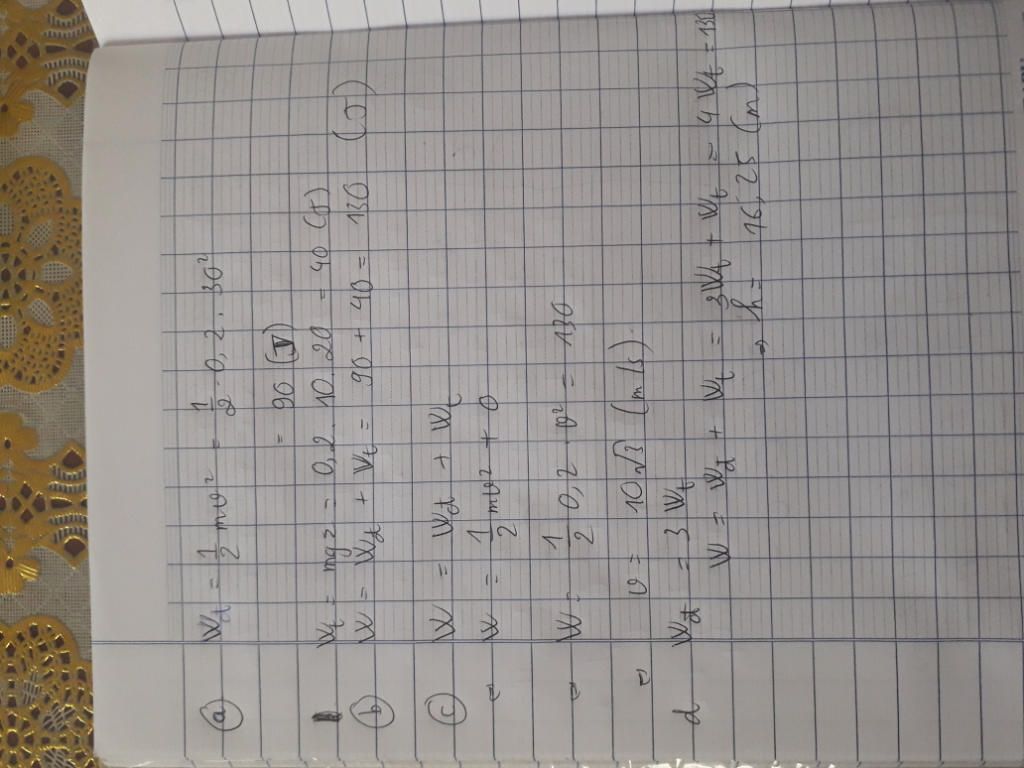 a) Wđ = 1/2 mv² = 1/2 . 0,2 . 30²
= 90 (J)
Wt = mgz = 0,2 . 10 . 20 = 40 (J)
b) W = Wđ + Wt = 90 + 40 = 130 (J)
c) W = Wđt + Wt
= W = 1/2 mv² + 0
= W = 1/2 0,2 . v² = 130
= v = 10√3 (m/s)
d Wđ = 3 Wt
W = Wđ + Wt = 3Wt + Wt = 4 Wt = 130
=> h = 16,25 (m)